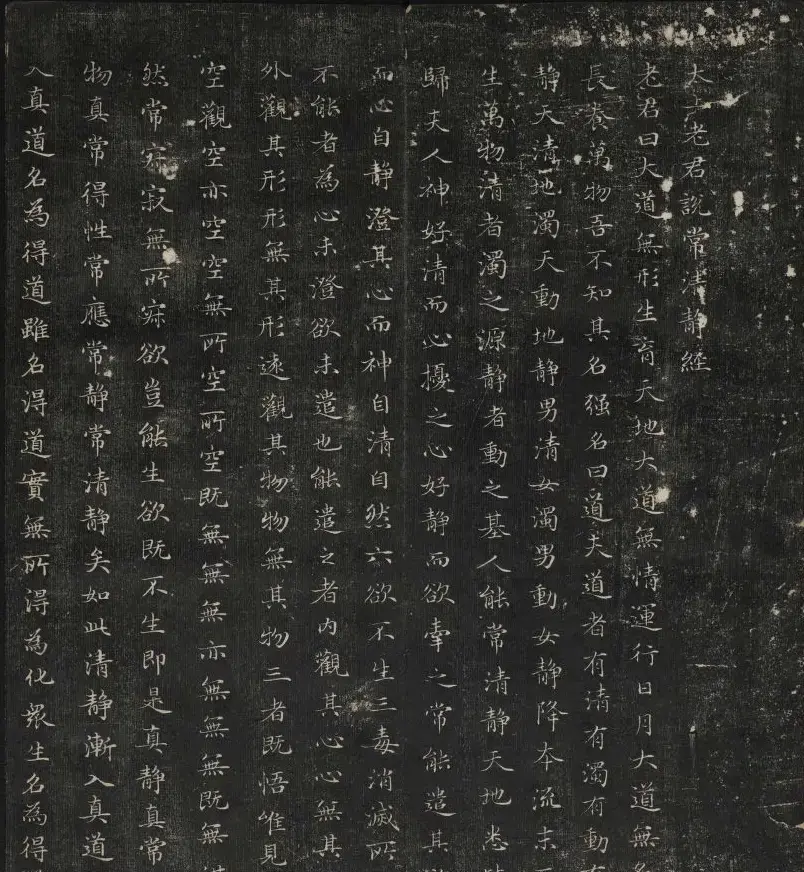 太上老君說常清靜經
老君曰大道無形生育天地大道無情運行日月大道無名
長養萬物吾不知其名强名曰道夫道者有清有濁有動
靜天清地濁天動地靜男清女濁男動女靜降本流末
生萬物清者濁之源靜者動之基人能常清靜天地悉
歸夫人神好清而心擾之心好靜而欲牽之常能遣其
而心自靜澄其心而神自清自然六欲不生三毒消滅所
不能者為心未澄欲未遣也能遣之者內觀其心心無其
外觀其形形無其形遠觀其物物無其物三者既悟唯見
空觀空亦空空無所空所空既無無無亦無無無既無
然常寂寂無所寂欲豈能生欲既不生即是真靜真常
物真常得性常應常靜常清靜矣如此清靜漸入真道
入真道名為得道雖名得道實無所得為化眾生名為得